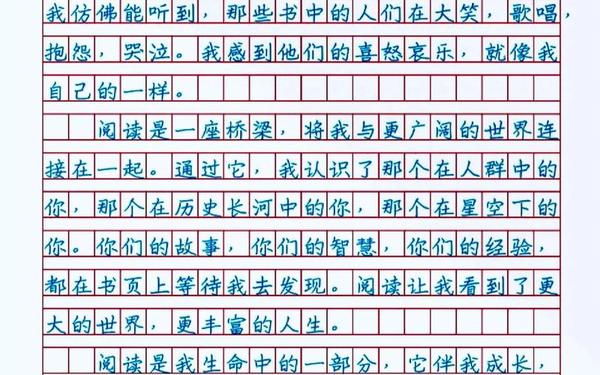 我仿佛能听到，那些书中的人们在大笑，歌唱，
抱怨，哭泣。我感到他们的喜怒哀乐，就像我
自己的一样。
阅读是一座桥梁，将我与更广阔的世界连
接在一起。通过它，我认识了那个在人群中的
你，那个在历史长河中的你，那个在星空下的
你。你们的故事，你们的智慧，你们的经验，
都在书页上等待我去发现。阅读让我看到了更
大的世界，更丰富的人生。
阅读是我生命中的一部分，它伴我成长，